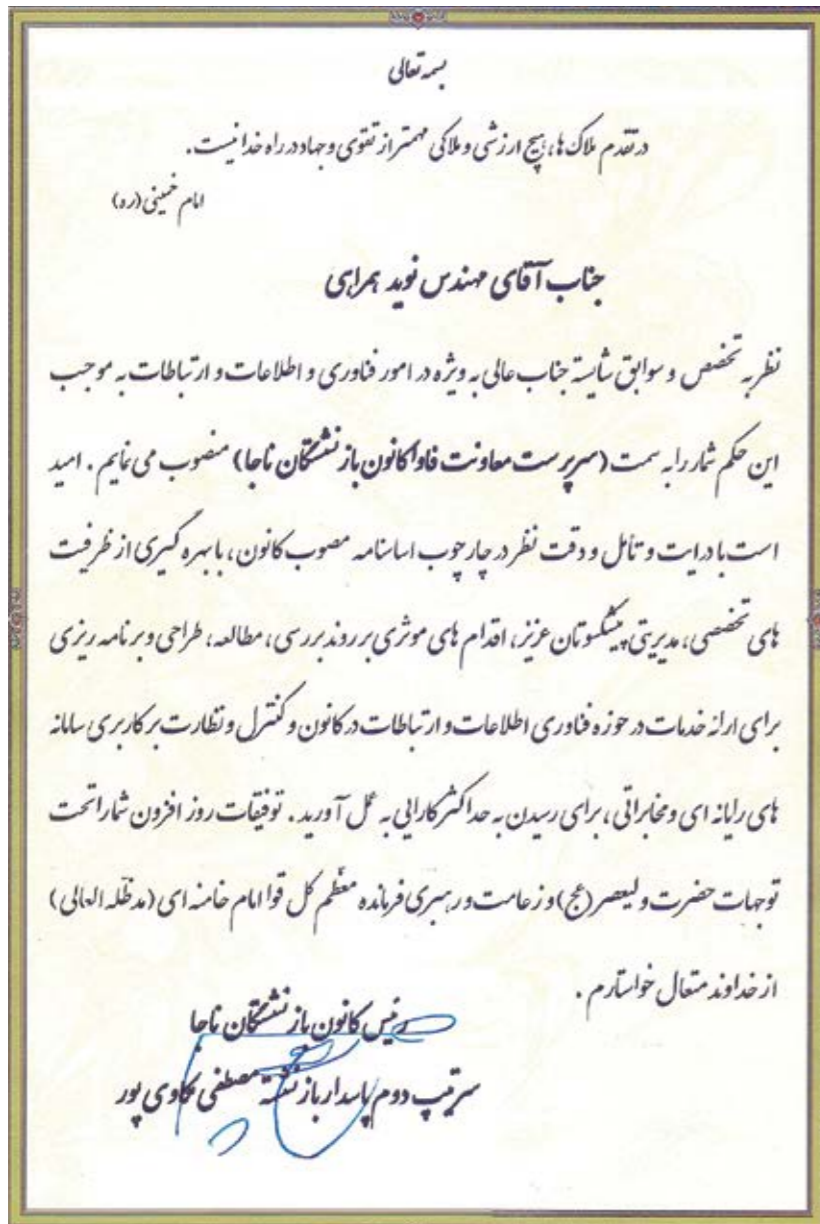 بسمه تعالی
در تقدم ملاک ها، هیچ ارزشی و ملاکی مهمتر از تقوی و جهاد در راه خدا نیست.
امام خمینی (ره)
جناب آقای مهندس نوید همراهی
نظر به تخصص و سوابق شایسته جناب عالی به ویژه در امور فناوری و اطلاعات و ارتباطات به موجب
این حکم شمار را به سمت (سرپرست معاونت فاوا کانون بازنشستگان ناجا) منصوب می نمایم. امید
است با درایت و تأمل و دقت نظر در چارچوب اساسنامه مصوب کانون، با بهره گیری از ظرفیت
های تخصصی، مدیریتی پیشکسوتان عزیز، اقدام های موثری بر روند بررسی، مطالعه، طراحی و برنامه ریزی
برای ارائه خدمات در حوزه فناوری اطلاعات و ارتباطات در کانون و کنترل و نظارت بر کاربری سامانه
های رایانه ای و مخابراتی، برای رسیدن به حداکثر کارایی به عمل آورید. توفیقات روز افزون شما را تحت
توجهات حضرت ولیعصر (عج) و زعامت و رهبری فرمانده معظّم کل قوا امام خامنه ای (مدظّله العالی)
از خداوند متعال خواستارم.
رئیس کانون بازنشستگان ناجا
سرتیپ دوم پاسدار بازنشسته مصطفی کاوی پور